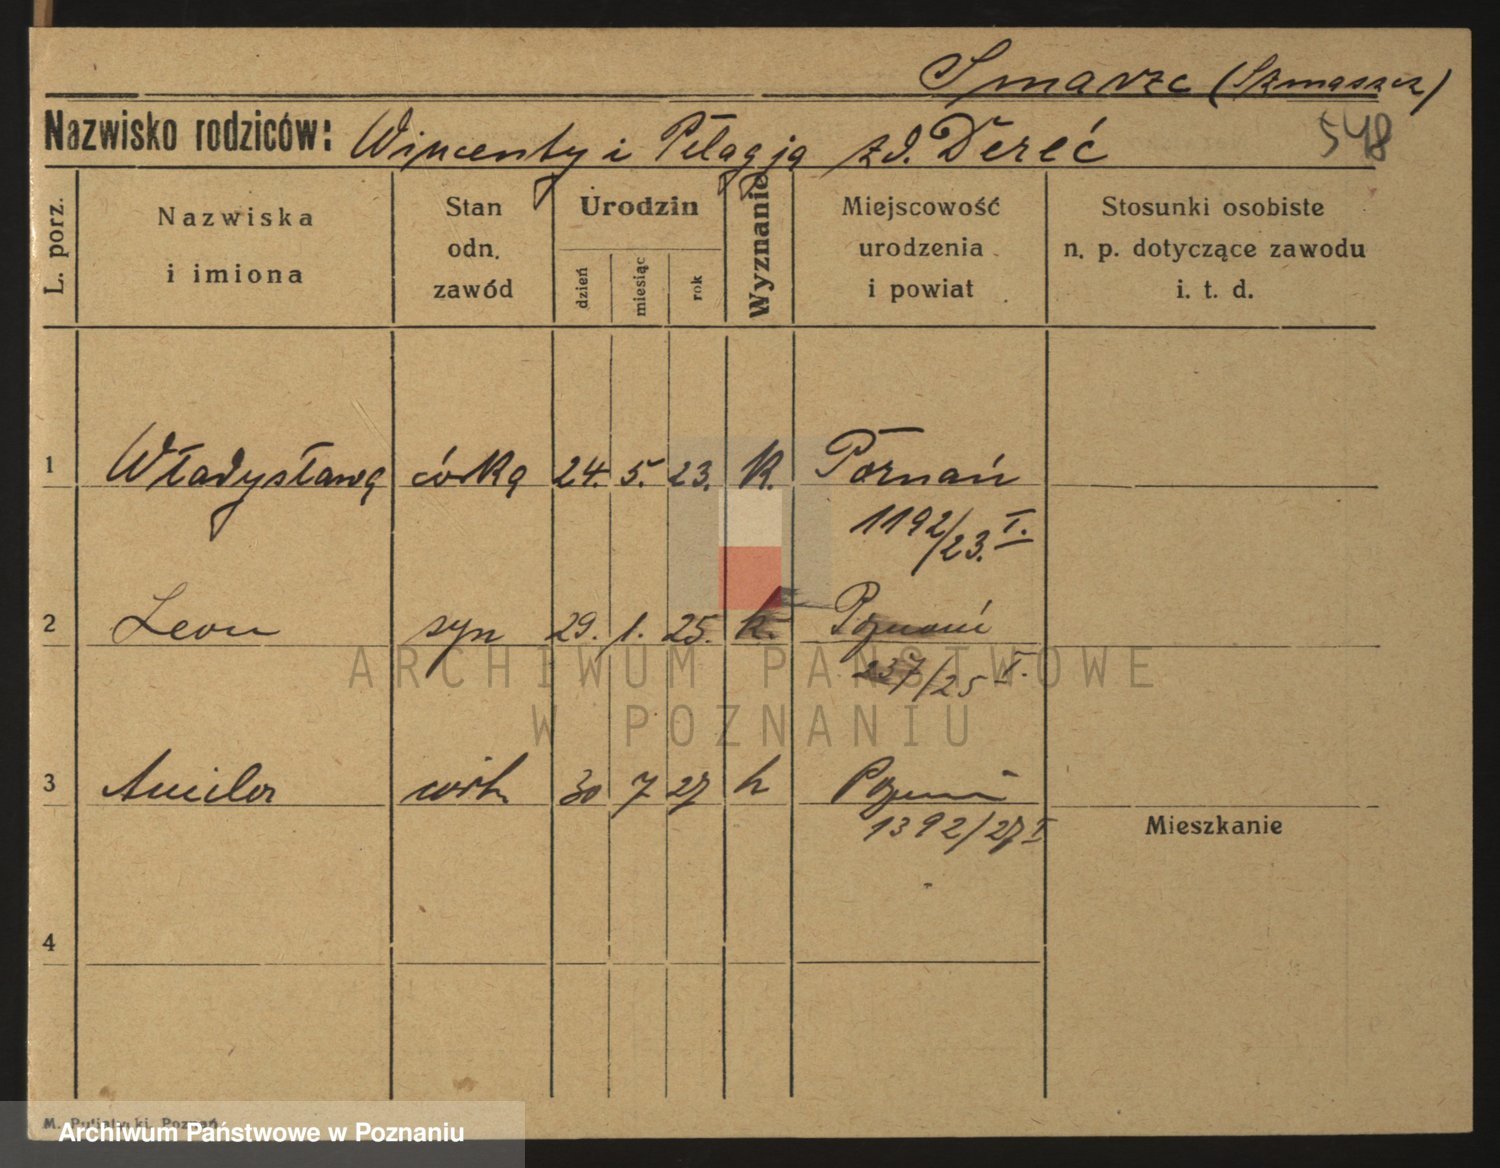 Smarzc (Szmaszcz)
Nazwisko rodziców: Wincenty i Pelagja zd. Dereć
548
L. porz.
Nazwiska i imiona
Stan odn. zawód
Urodzin
dzień
miesiąc
rok
Wyznanie
Miejscowość urodzenia i powiat
Stosunki osobiste n. p. dotyczące zawodu i. t. d.
1 Władysława córka 24. 5. 23. K. Poznań
1192/23. I.
2 Leon syn 29. 1. 25. k. Poznań
237/25 I.
3 córk. 30 7 27 k Poznań
1392/27 I
Mieszkanie
4
ARCHIWUM PAŃSTWOWE
W POZNANIU
M. Poznań
Archiwum Państwowe w Poznaniu